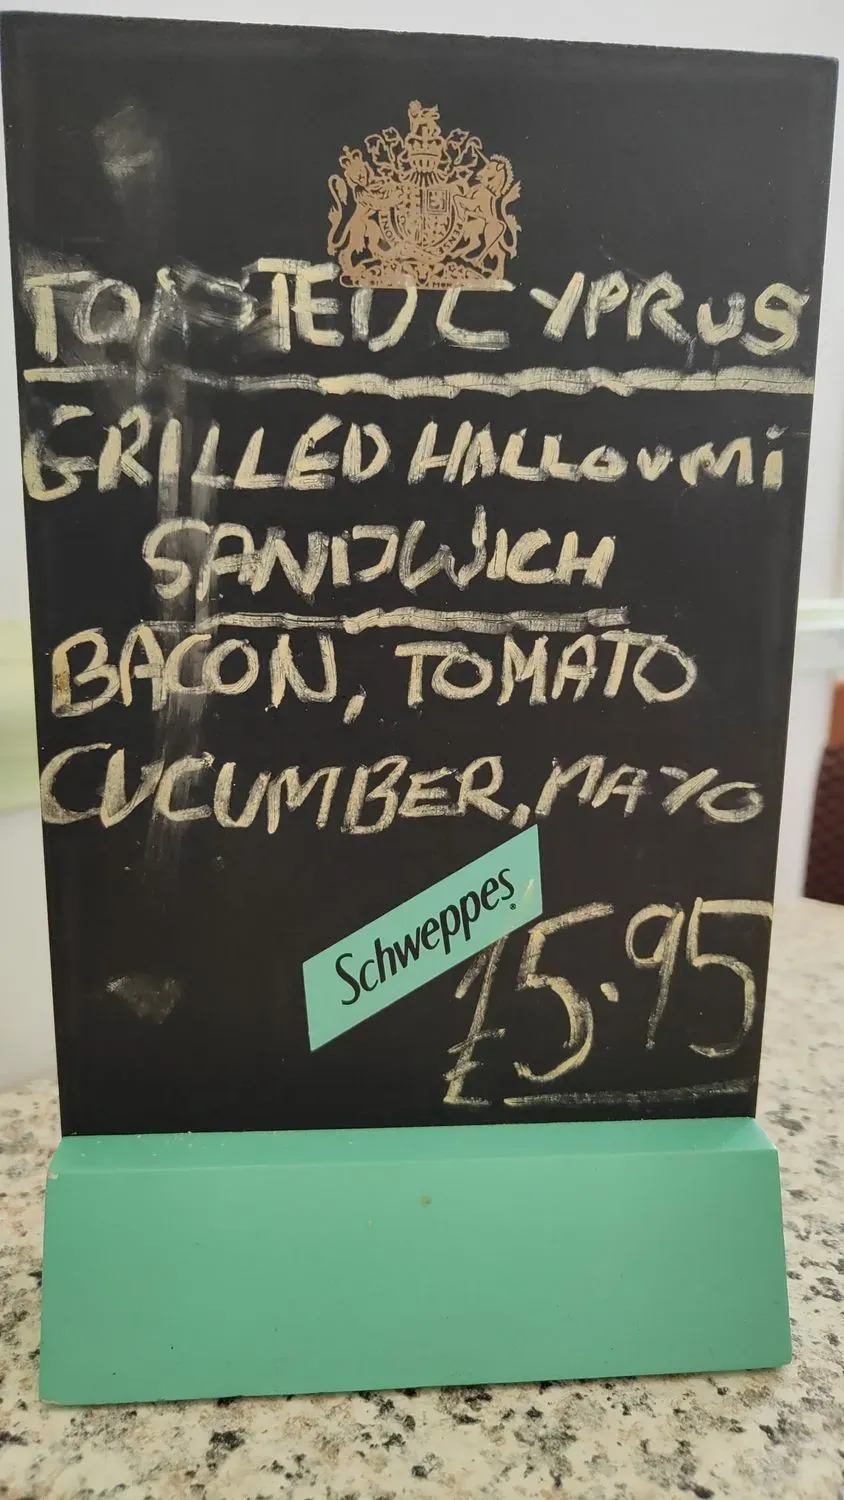 TOASTED CYPRUS
GRILLED HALLOUMI
SANDWICH
BACON, TOMATO
CUCUMBER, MAYO
Schweppes
£5.95